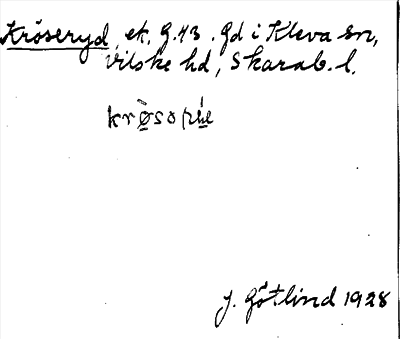 Kröseryd, ek. g. 43. gd i Kleva sn,
Vilske hd, Skarab. l.
J. Götlind 1928